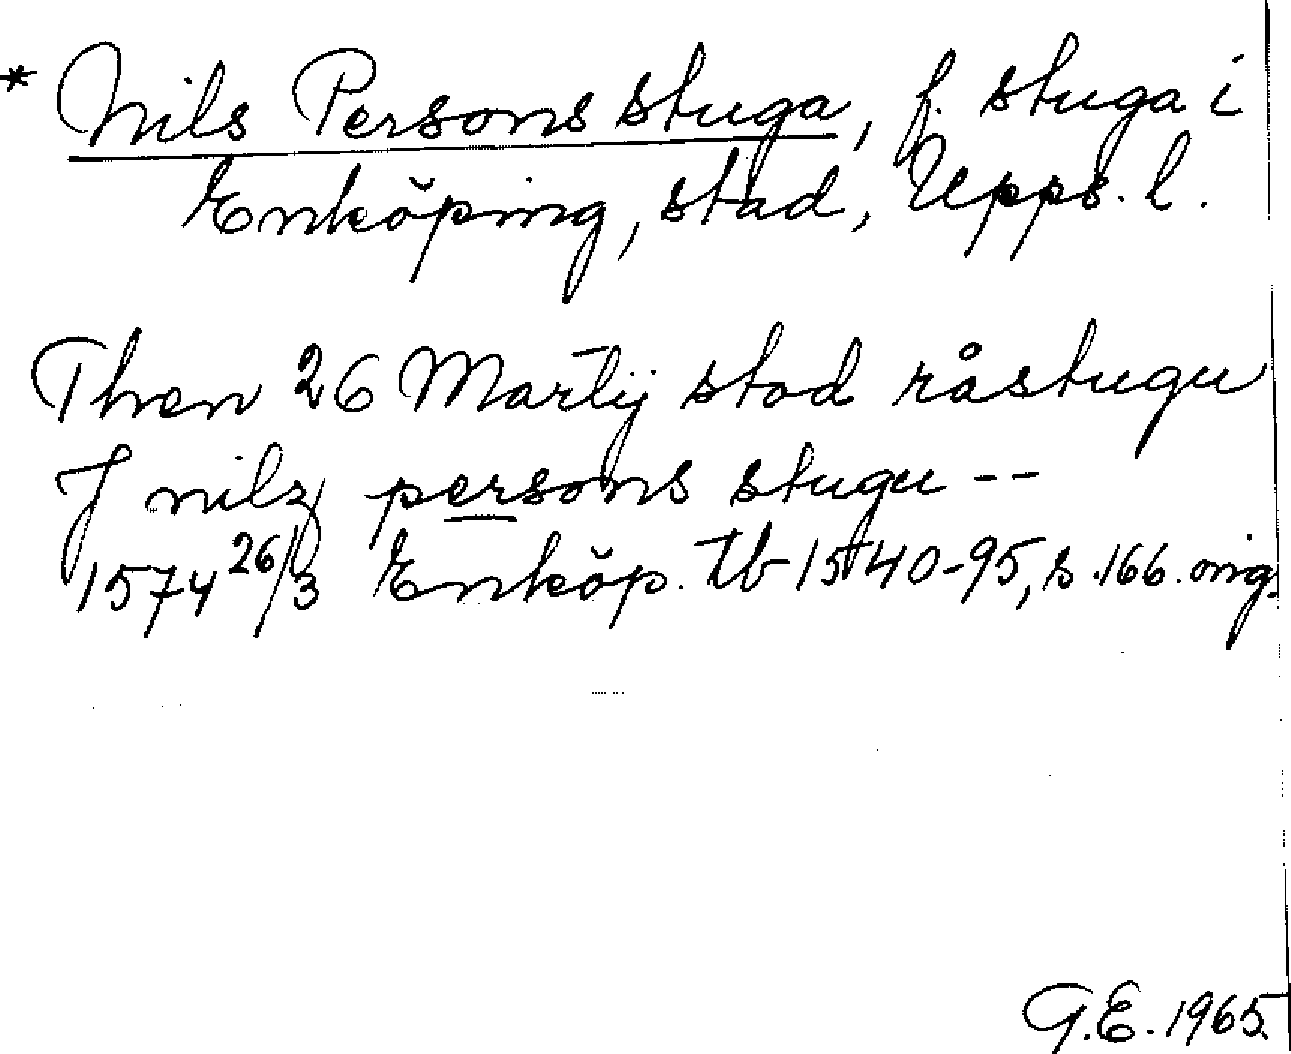 * Nils Persons stuga, f. stuga i
Enköping, stad, Upps. l.
Then 26 Martij stod råstugu
J nilz persons stugu --
1574 26/3 Enköp. tb 1540-95, s. 166. orig.
G.E. 1965